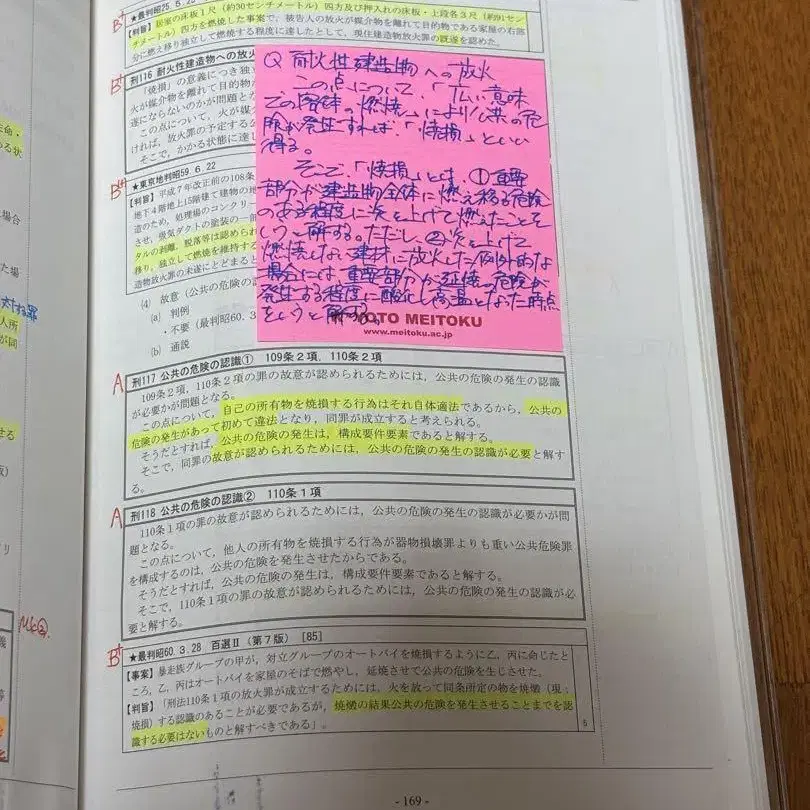 B+
★最判昭25.5.25
【判旨】居室の床板1尺（約30センチメートル）四方及び押入れの床板・上段各3尺（約91セン
チメートル）四方を燃焼した事案で，被告人の放火が媒介物を離れて目的物である家屋の右部
分に燃え移り独立して燃焼する程度に達したとして，現住建造物放火罪の既遂を認めた。
B+
刑116 耐火性建造物への放火
「焼損」の意義につき独立
火が媒介物を離れて目的物が
遂にならないのかが問題とな
この点について，火が媒
ければ，放火罪の予定する公
そこで，かかる状態に達し
B+
★東京地判昭59.6.22
【判旨】平成7年改正前の108条
地下4階地上15階建て建物の地
造のため，処理場のコンクリー
させ，蛍気ダクトの塗装の一部
タルの剥離，脱落等は認められ
移り，独立して燃焼を維持する
造物放火罪の未遂にとどまると
(4) 故意（公共の危険の認
(a) 判例
・不要（最判昭60.3.
(b) 通説
Q 耐火性建造物への放火
この点について、「広い意味
での客体の燃焼」により公共の危
険が発生すれば、「焼損」といい
得る。
そこで、「焼損」とは、①重要
部分が建造物全体に燃え移る危険
のある程度に炎を上げて燃えたことを
いうと解する。ただし、②炎を上げて
燃焼しない建材に放火した例外的な
場合には、重要部分が延焼の危険が
発生する程度に酸化し高温となった時点
をいうと解する。
KYOTO MEITOKU
www.meitoku.ac.jp
A
刑117 公共の危険の認識① 109条2項，110条2項
109条2項，110条2項の罪の故意が認められるためには，公共の危険の発生の認識
が必要かが問題となる。
この点について，自己の所有物を焼損する行為はそれ自体適法であるから，公共の
危険の発生があって初めて違法となり，同罪が成立すると考えられる。
そうだとすれば，公共の危険の発生は，構成要件要素であると解する。
そこで，同罪の故意が認められるためには，公共の危険の発生の認識が必要と解す
る。
A
刑118 公共の危険の認識② 110条1項
110条1項の罪の故意が認められるためには，公共の危険の発生の認識が必要かが問
題となる。
この点について，他人の所有物を焼損する行為が器物損壊罪よりも重い公共危険罪
を構成するのは，公共の危険を発生させたからである。
そうだとすれば，公共の危険の発生は，構成要件要素であると解する。
そこで，110条1項の罪の故意が認められるためには，公共の危険の発生の認識が必
要と解する。
B+
★最判昭60.3.28 百選Ⅱ（第7版）[85]
【事案】暴走族グループの甲が，対立グループのオートバイを焼損するように乙，丙に命じたと
ころ，乙，丙はオートバイを家屋のそばで燃やし，延焼させて公共の危険を生じさせた。
【判旨】「刑法110条1項の放火罪が成立するためには，火を放って同条所定の物を焼燬（現：
焼損）する認識のあることが必要であるが，焼燬の結果公共の危険を発生させることまでを認
識する必要はないものと解すべきである」。
- 169 -